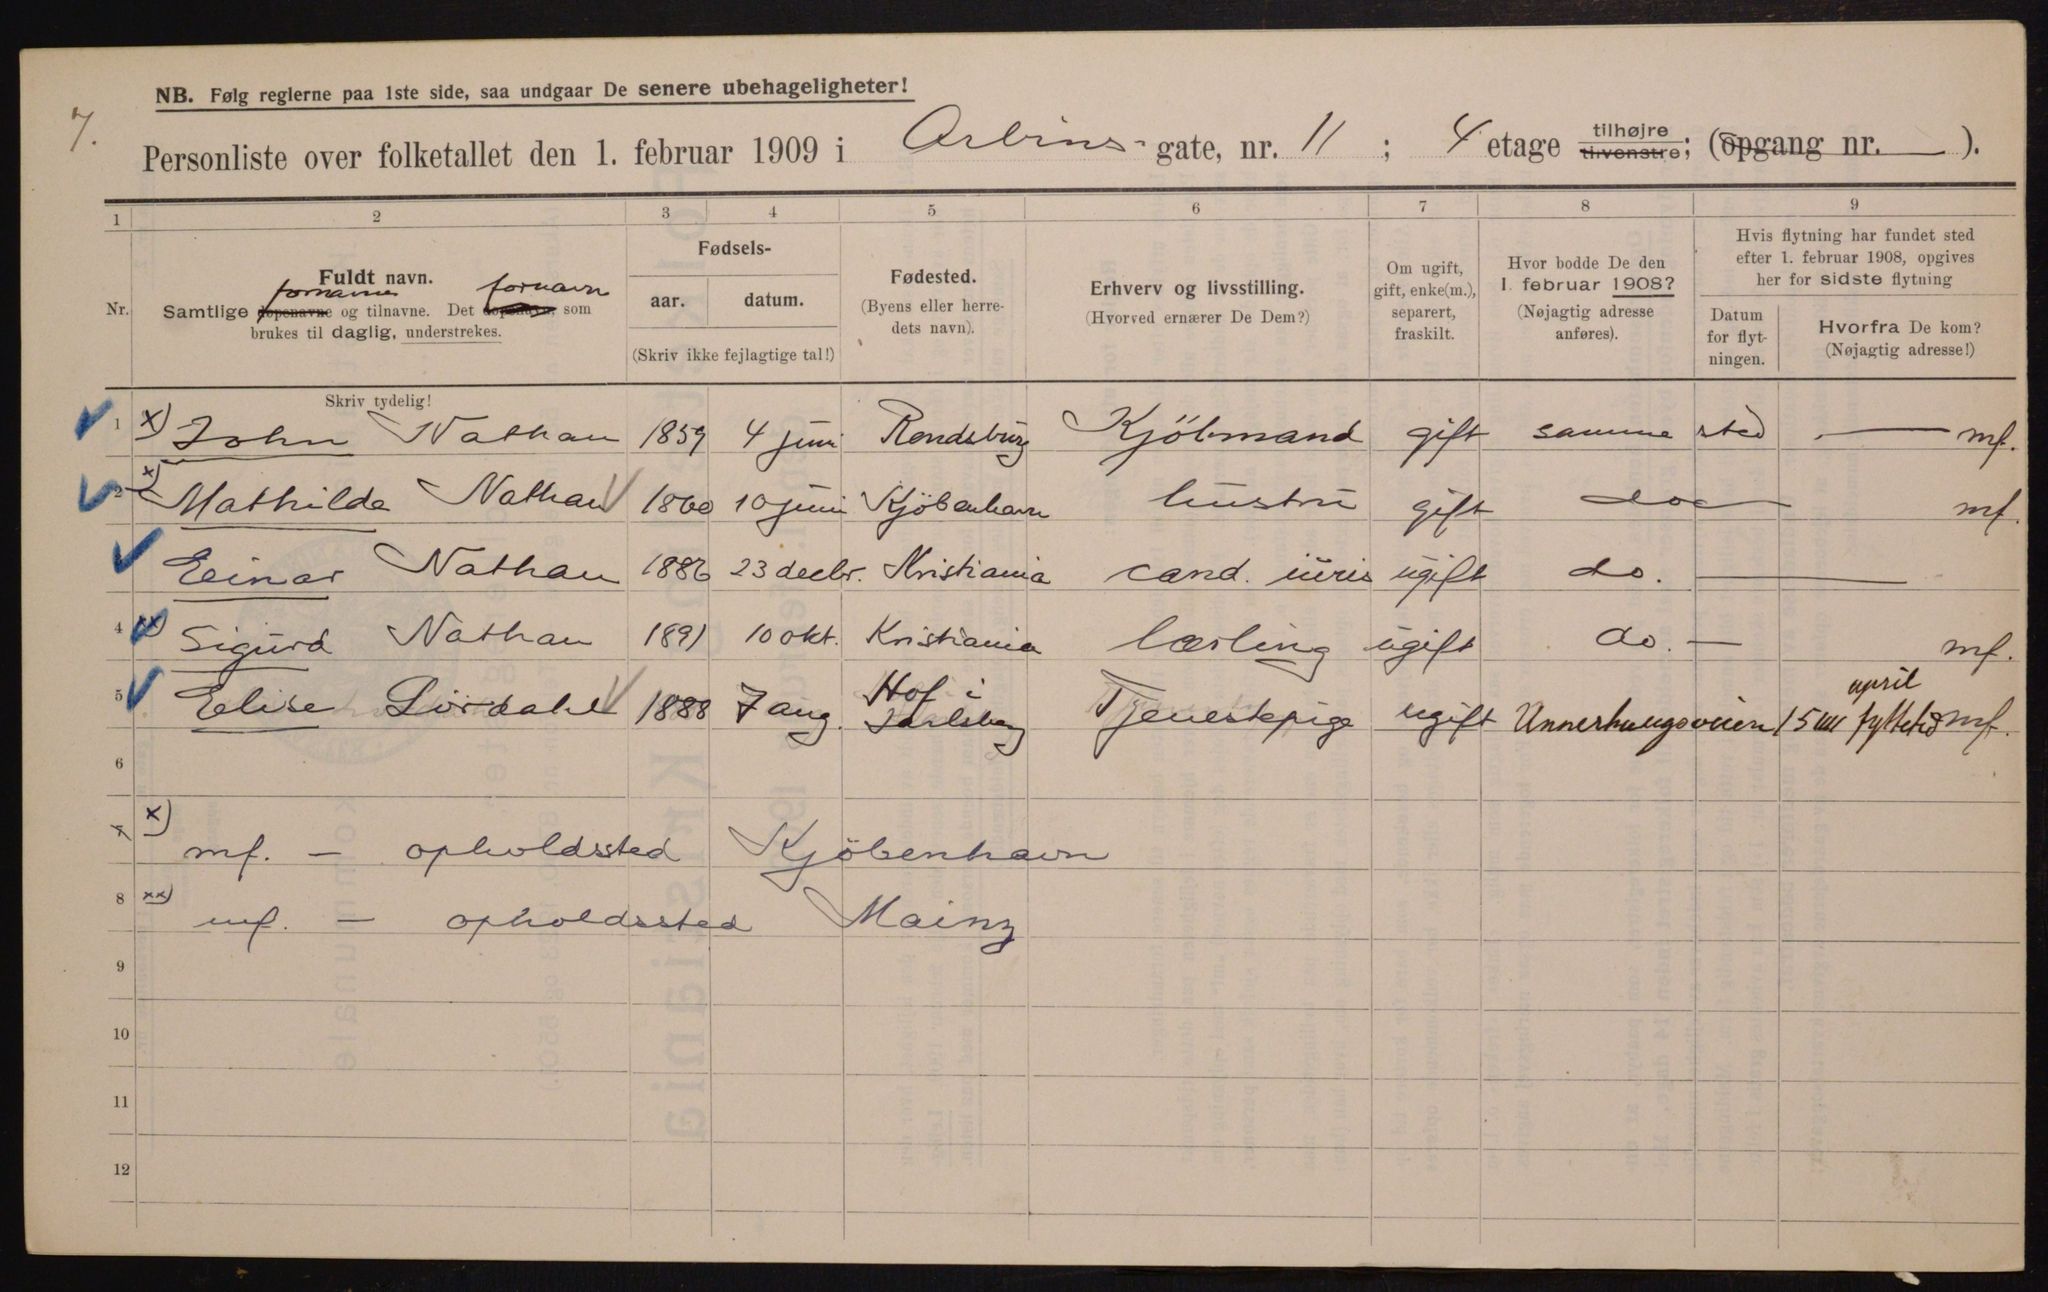 7.
NB. Følg reglerne paa 1ste side, saa undgaar De senere ubehageligheter!
Personliste over folketallet den 1. februar 1909 i Arbins- gate, nr. 11 ; 4 etage tilhøjre tilvenstre; (opgang nr. — ).
1 2 3 4 5 6 7 8 9
Nr.
Fuldt navn.
Samtlige døpenavne fornavne og tilnavne. Det døpenavn fornavn som
brukes til daglig, understrekes.
Fødsels-
aar. datum.
(Skriv ikke fejlagtige tal!)
Fødested.
(Byens eller herre-
dets navn).
Erhverv og livsstilling.
(Hvorved ernærer De Dem?)
Om ugift,
gift, enke(m.),
separert,
fraskilt.
Hvor bodde De den
1. februar 1908?
(Nøjagtig adresse
anføres).
Hvis flytning har fundet sted
efter 1. februar 1908, opgives
her for sidste flytning
Datum
for flyt-
ningen.
Hvorfra De kom?
(Nøjagtig adresse!)
Skriv tydelig!
1 x) John Nathan 1859 4 juni Rendsburg Kjöbmand gift samme sted — mf.
2 x) Mathilde Nathan 1860 10 juni Kjöbenhavn hustru gift do — mf.
Einar Nathan 1886 23 decbr. Kristiania cand. iuris ugift do. —
4 xx) Sigurd Nathan 1891 10 okt. Kristiania lærling ugift do. — mf.
5 Elise Lördahl 1888 7 aug. Hof i Jarlsberg Tjenestepige ugift 15 april mf.
6
7 x) mf. — opholdssted Kjöbenhavn
8 xx) mf. — opholdssted Mainz
9
10
11
12